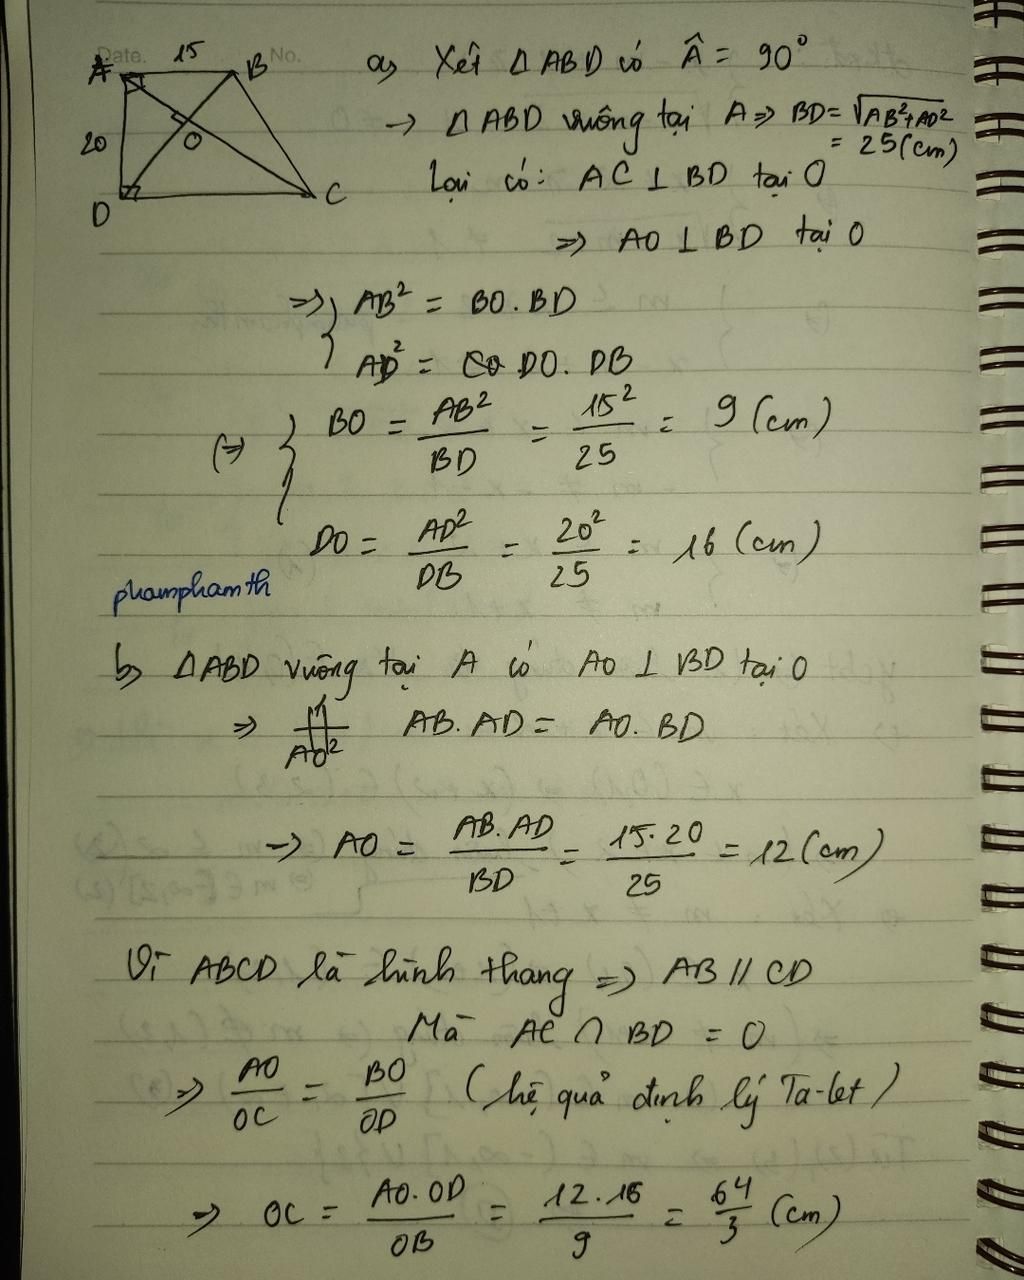 Date. No.
15
A B
20 O
D C
a) Xét ΔABD có Â = 90°
→ ΔABD vuông tại A => BD = √AB²+AD²
= 25(cm)
Lại có: AC ⊥ BD tại O
=> AO ⊥ BD tại O
=> { AB² = BO.BD
AD² = DO. DB
(=> { BO = AB²/BD = 15²/25 = 9 (cm)
DO = AD²/DB = 20²/25 = 16 (cm)
phamphamth
b) ΔABD vuông tại A có AO ⊥ BD tại O
=> AB. AD = AO. BD
→ AO = AB. AD/BD = 15.20/25 = 12(cm)
Vì ABCD là hình thang => AB // CD
Mà AC ∩ BD = O
=> AO/OC = BO/OD (hệ quả định lý Ta-let)
=> OC = AO.OD/OB = 12.16/9 = 64/3 (cm)